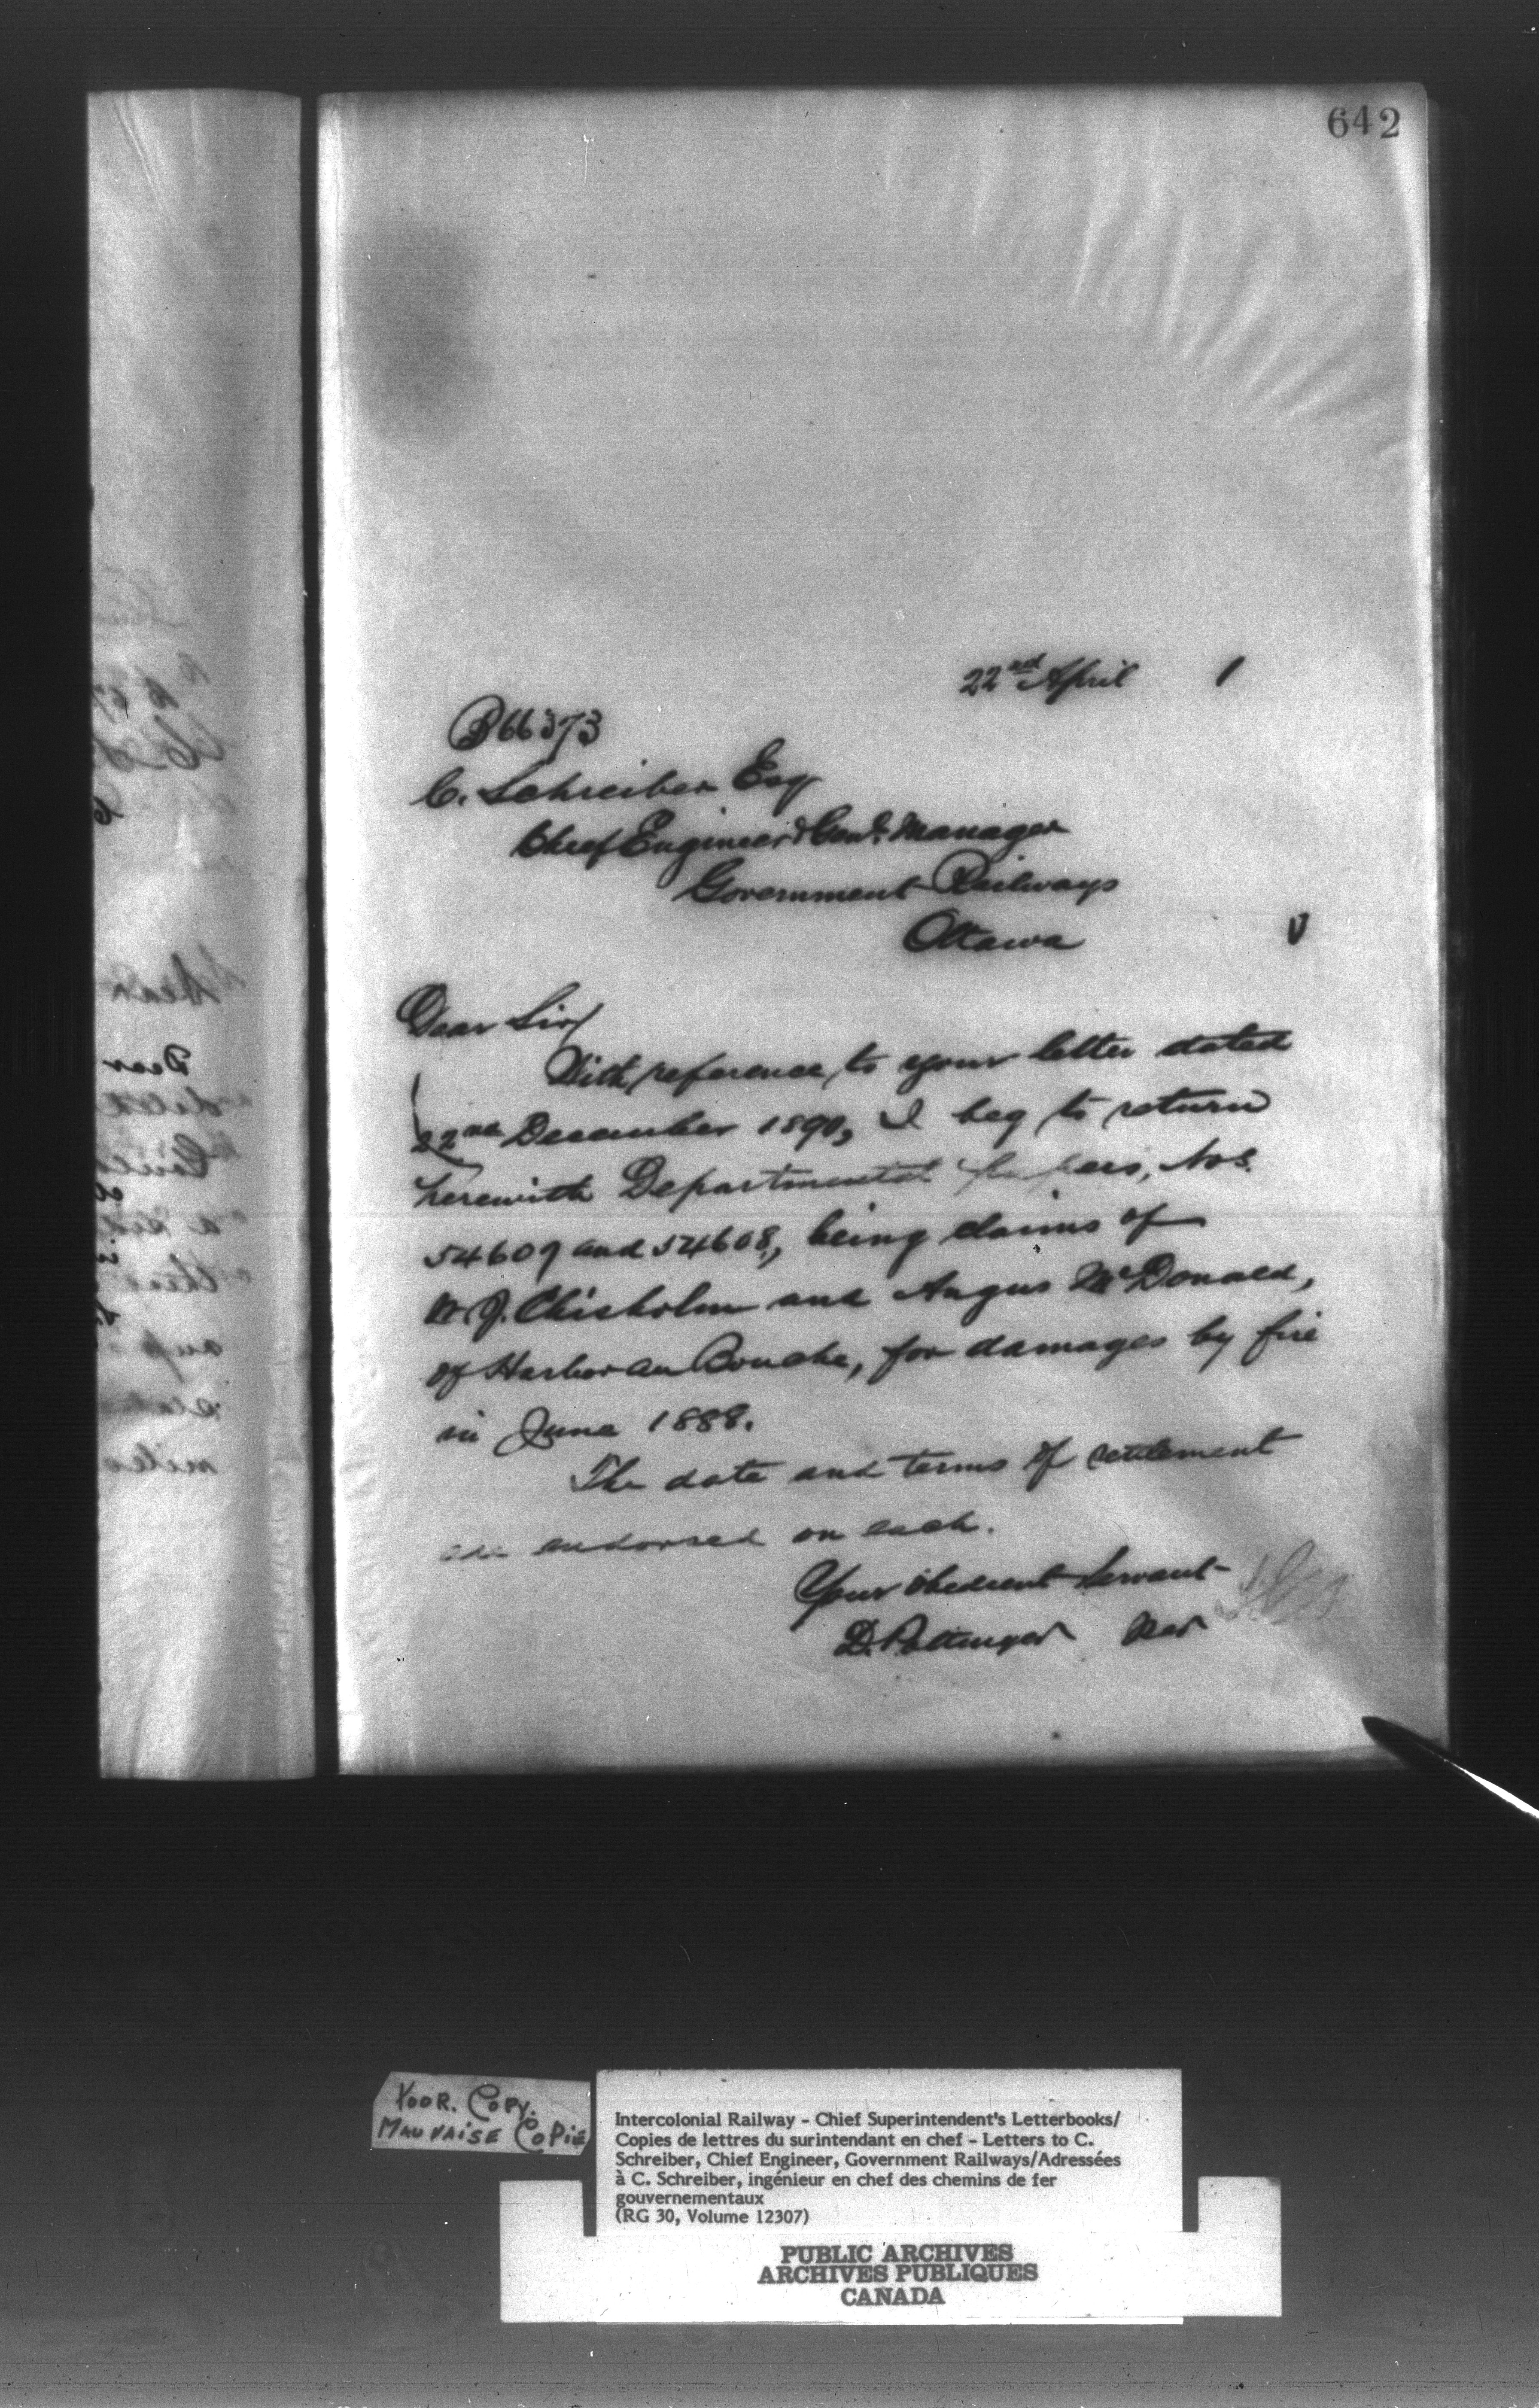 642
22nd April 1
B66373
C. Schreiber Esq
Chief Engineer & Genl. Manager
Government Railways
Ottawa
Dear Sir/
With reference to your letter dated
22nd December 1890, I beg to return
herewith Departmental papers, Nos.
54609 and 54608, being claims of
W. J. Chisholm and Angus McDonald,
of Harbor au Bouche, for damages by fire
in June 1888.
The date and terms of settlement
are endorsed on each.
Your obedient Servant
D. Pottinger
POOR. COPY.
MAUVAISE COPIE
Intercolonial Railway - Chief Superintendent's Letterbooks/
Copies de lettres du surintendant en chef - Letters to C.
Schreiber, Chief Engineer, Government Railways/Adressées
à C. Schreiber, ingénieur en chef des chemins de fer
gouvernementaux
(RG 30, Volume 12307)
PUBLIC ARCHIVES
ARCHIVES PUBLIQUES
CANADA